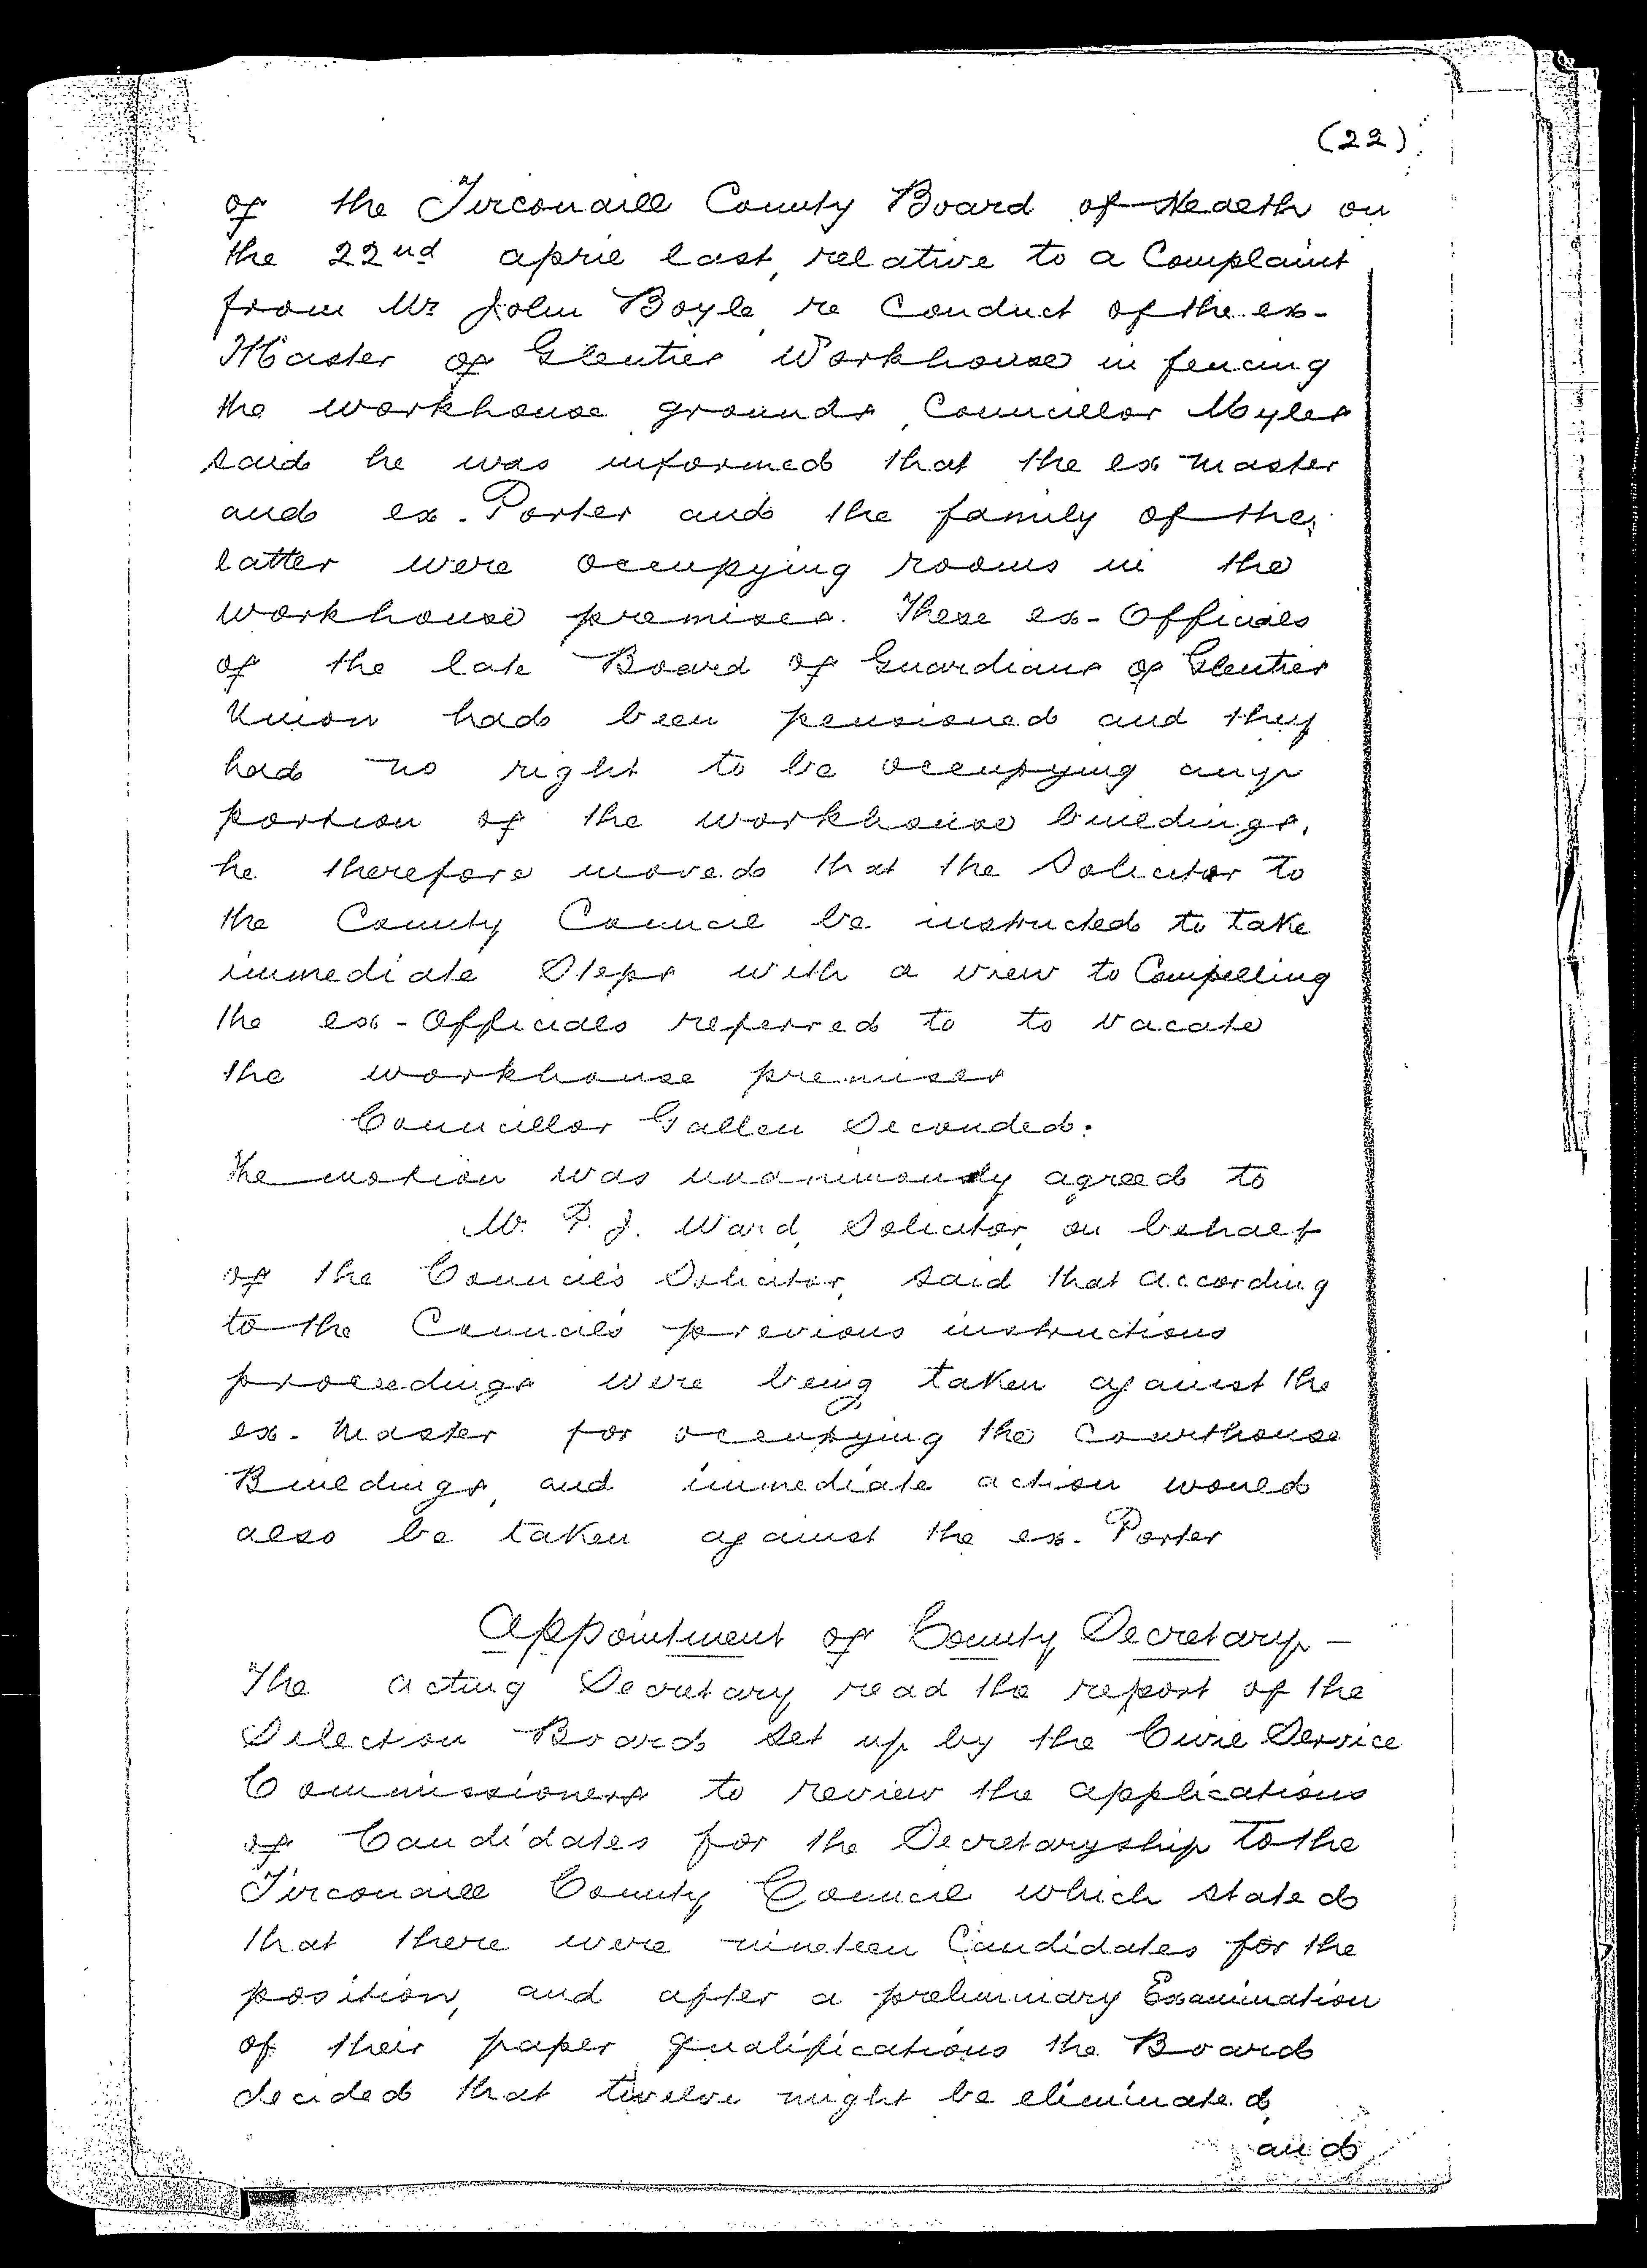 (22)
of the Tirconaill County Board of Health on
the 22nd april last, relative to a Complaint
from Mr John Boyle, re Conduct of the ex-
Master of Glenties Workhouse in fencing
the workhouse grounds, Councillor Myles
said he was informed that the ex master
and ex. Porter and the family of the
latter were occupying rooms in the
workhouse premises. These ex-Officials
of the late Board of Guardians of Glenties
Union had been pensioned and they
had no right to be occupying any
portion of the workhouse buildings,
he therefore moved that the Solicitor to
the County Council be instructed to take
immediate Steps with a view to Compelling
the ex-Officials referred to to vacate
the workhouse premises
Councillor Gallen Seconded.
The motion was unanimously agreed to
Mr. P. J. Ward, Solicitor, on behalf
of the Council's Solicitor, said that according
to the Council's previous instructions
proceedings were being taken against the
ex. Master for occupying the Courthouse
Buildings, and immediate action would
also be taken against the ex. Porter
Appointment of County Secretary -
The acting Secretary read the report of the
Selection Board set up by the Civil Service
Commissioners to review the applications
of Candidates for the Secretaryship to the
Tirconaill County Council which stated
that there were nineteen Candidates for the
position, and after a preliminary Examination
of their paper qualifications the Board
decided that twelve might be eliminated,
and